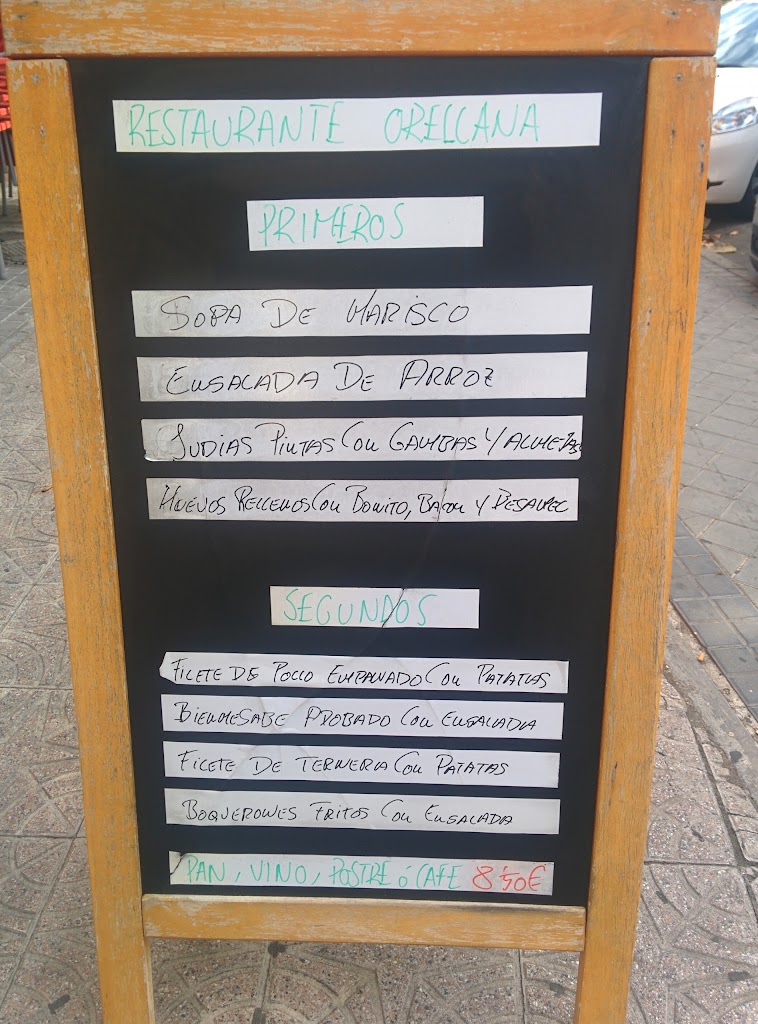 RESTAURANTE ORELLANA
PRIMEROS
SOPA DE MARISCO
ENSALADA DE ARROZ
JUDIAS PINTAS CON GAMBAS Y ALMEJAS
HUEVOS RELLENOS CON BONITO, BACON Y
SEGUNDOS
FILETE DE POLLO EMPANADO CON PATATAS
BIENMESABE ADOBADO CON ENSALADA
FILETE DE TERNERA CON PATATAS
BOQUERONES FRITOS CON ENSALADA
PAN, VINO, POSTRE ó CAFE 8'50€